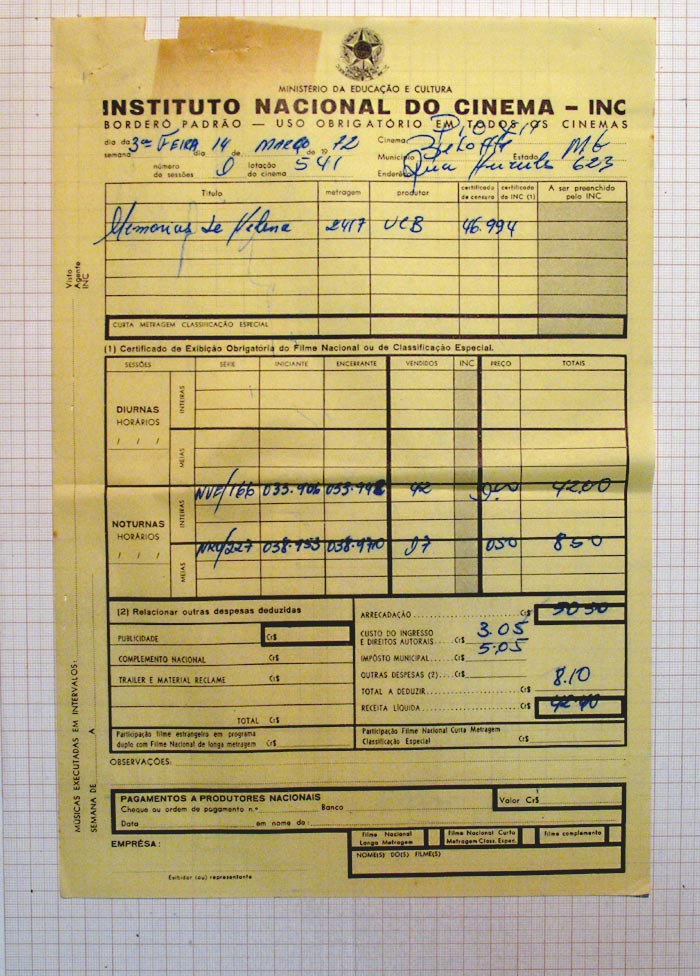 MINISTÉRIO DA EDUCAÇÃO E CULTURA
INSTITUTO NACIONAL DO CINEMA – INC
BORDERÔ PADRÃO — USO OBRIGATÓRIO EM TODOS OS CINEMAS
dia da semana 3ª FEIRA dia 14 de MARÇO de 1972 Cinema:
Município Estado MG
número de sessões lotação do cinema 541 Endereço Rua 623
Título metragem produtor certificado de censura certificado do INC (1) A ser preenchido pelo INC
Memorias de Helena 2417 UCB 46.994
Visto Agente INC
CURTA METRAGEM CLASSIFICAÇÃO ESPECIAL
(1) Certificado de Exibição Obrigatória do Filme Nacional ou de Classificação Especial.
SESSÕES SÉRIE INICIANTE ENCERRANTE VENDIDOS INC PREÇO TOTAIS
DIURNAS
HORÁRIOS
/ / /
INTEIRAS
MEIAS
NUE/166 033.906 033.948 42 42,00
NOTURNAS
HORÁRIOS
/ / /
INTEIRAS
/227 038.953 038.970 17 050 850
MEIAS
(2) Relacionar outras despesas deduzidas
PUBLICIDADE Cr$
COMPLEMENTO NACIONAL Cr$
TRAILER E MATERIAL RECLAME Cr$
TOTAL Cr$
Participação filme estrangeiro em programa
duplo com Filme Nacional de longa metragem Cr$
ARRECADAÇÃO Cr$ 50 50
CUSTO DO INGRESSO
E DIREITOS AUTORAIS Cr$ 3.05
5.05
IMPÔSTO MUNICIPAL Cr$
OUTRAS DESPESAS (2) Cr$
8.10
TOTAL A DEDUZIR
RECEITA LÍQUIDA Cr$ 42.40
Participação Filme Nacional Curta Metragem
Classificação Especial Cr$
OBSERVAÇÕES:
PAGAMENTOS A PRODUTORES NACIONAIS
Cheque ou ordem de pagamento n.º Banco Valor Cr$
Data em nome de:
EMPRÊSA:
Filme Nacional Longa Metragem
Filme Nacional Curta Metragem Class. Espec.
filme complemento
NOME(S) DO(S) FILME(S)
Exibidor (ou) representante
MÚSICAS EXECUTADAS EM INTERVALOS:
SEMANA DE A